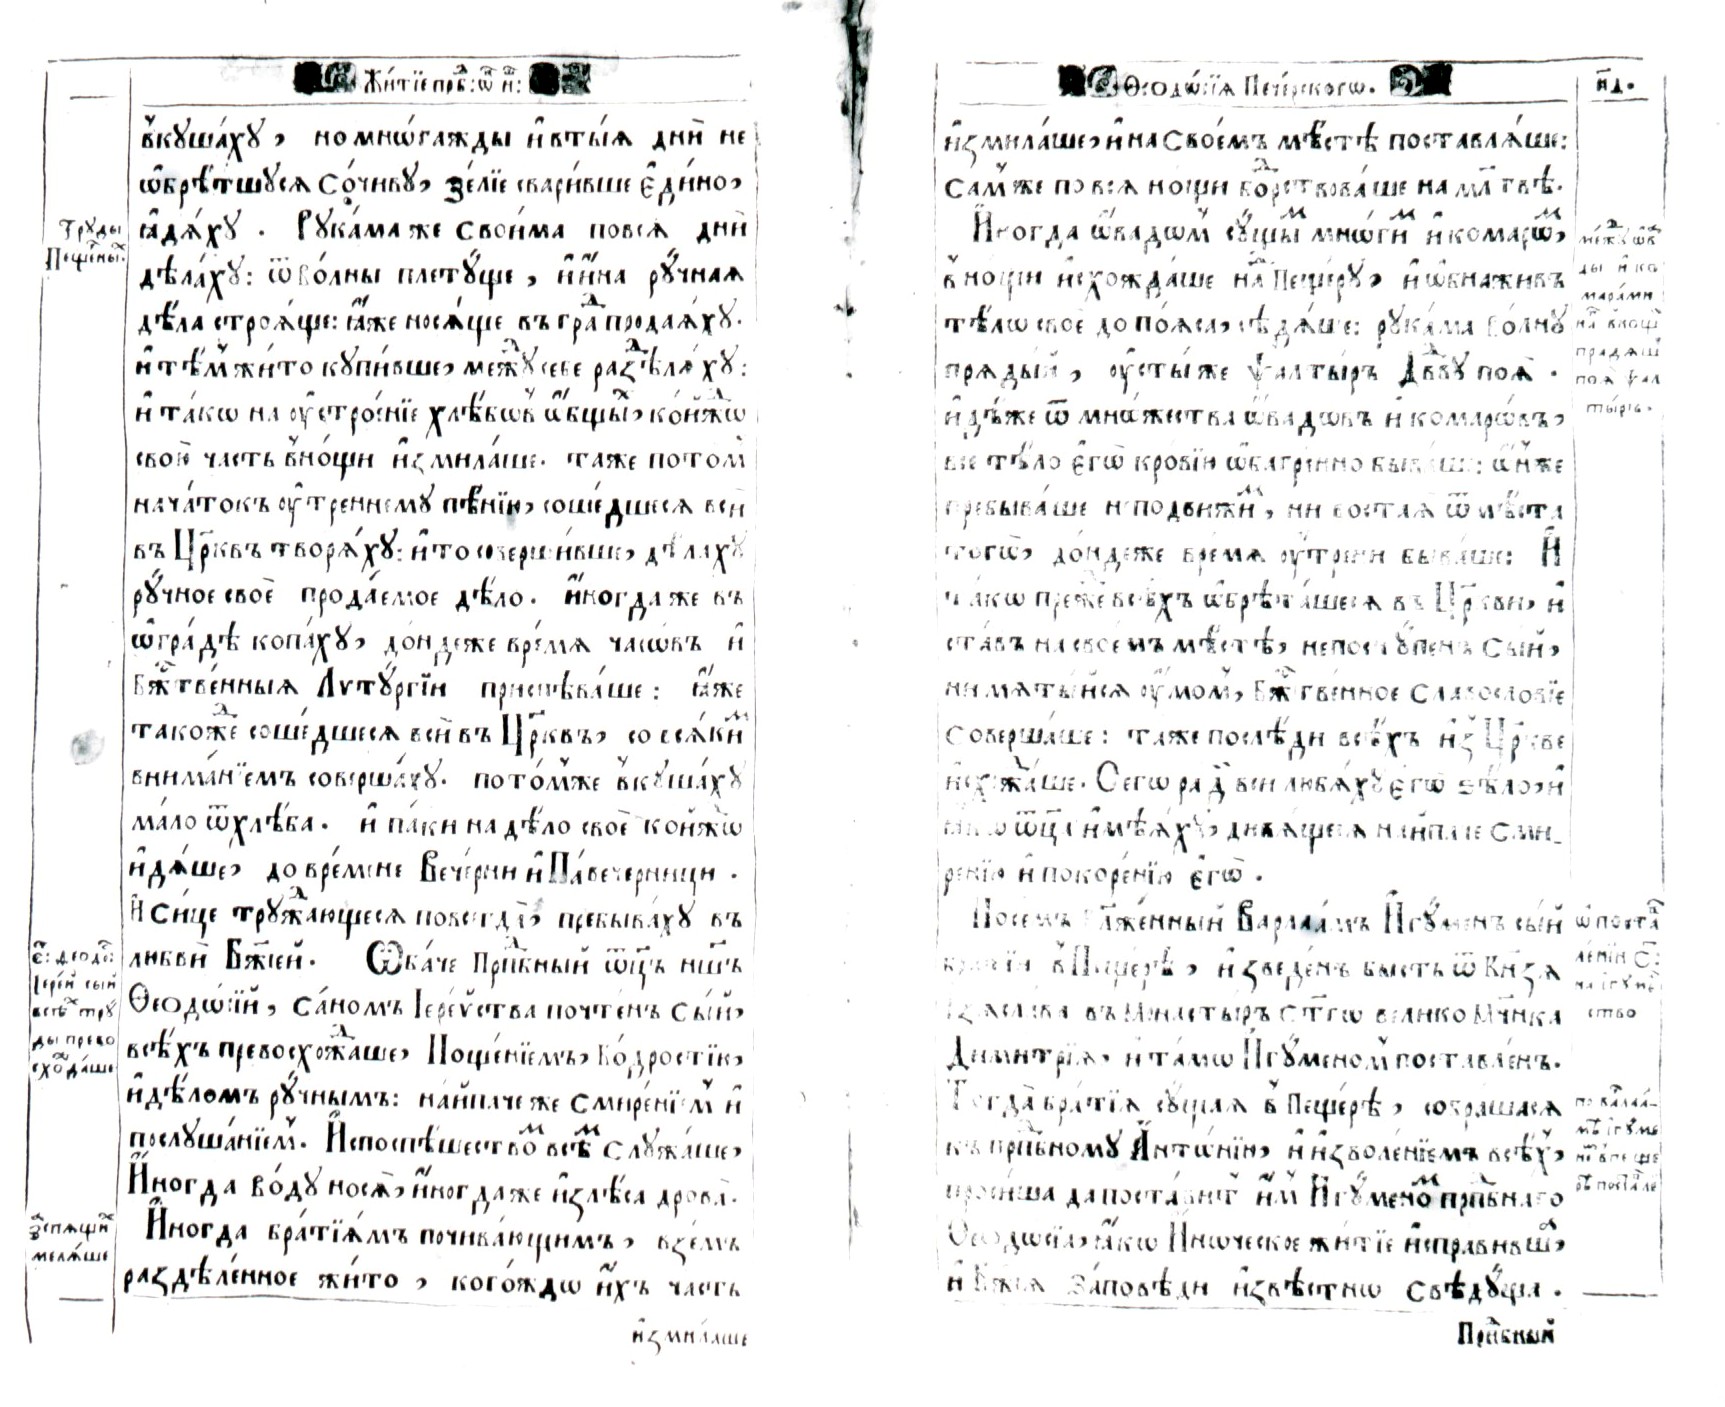 Жи́тїе прпⷣб: ѿ н҃:
в̾куша́ху, но мнѡ́гажды и҆ в ты́ѧ дни̑ не
ѡ҆брѣ́тшуся Со́чиву, зе́лїе свари́вше є҆ди́но,
ꙗ҆дѧ́ху. Рꙋка́ма же свои́ма по всѧ̑ дни̑
дѣ́лаху: ѿ во́лны плетꙋ́ще, и҆ и҆́на рꙋ́чнаѧ
дѣ́ла строѧ́ще: ꙗ҆́же носѧ́ще въ граⷣ продаѧ́хꙋ.
и҆ тѣ́мъ жи́то кꙋпи́вше, межⷣꙋ себе разⷣѣлѧ́хꙋ:
и҆ та́кѡ на ѹ҆строе́нїе хлѣ́бѡвъ ѡ҆́бщыⷯ, ко́йжⷣѡ
свою̀ часть в̾но́щи и҆змила́ше. та́же пото́мъ
нача́токъ ѹ҆́треннемꙋ пѣ́нїю, соше́дшесѧ всѝ
въ Цр҃ковь творѧ́хꙋ: и҆ то соверши́вше, дѣ́лахꙋ
рꙋ́чное своѐ продае́мое дѣ́ло. и҆́ногда же въ
ѡ҆гра́дѣ копа́хꙋ, до́ндеже вре́мѧ часѡ́въ и҆
Бжⷭ҇тве́нныѧ Лѵтꙋ́ргїи приспѣва́ше: ꙗ҆́же
та́кожⷣе соше́дшесѧ всѝ въ Цр҃ковь, со всѧ́киⷨ
внима́нїемъ соверша́хꙋ. пото́мже в̾кꙋша́хꙋ
ма́ло ѿ хлѣ́ба. и҆ па́ки на дѣ́ло своѐ ко́йжⷣѡ
и҆дѧ́ше, до вре́мене Вече́рни и҆ Па́вечерници.
И҆ си́це трꙋжⷣа́ющесѧ повсегда̀, пребыва́хꙋ въ
любвѝ Бж҃їей. Ѻ҆ба́че Прпⷣбный ѿц҃ъ на́шъ
Ѳеодѡ́сїй, са́номъ Їере́йства почте́нъ сы́й,
всѣ́хъ превосхожⷣа́ше, Поще́нїемъ, бо́дростїю,
и҆ дѣ́ломъ рꙋ́чнымъ: на́йпаче же смире́нїемъ и҆
послꙋша́нїемъ. И҆ поспѣ́шествоⷨ всѣⷨ слꙋжа́ше,
И҆́ногда во́дꙋ носѧ̀, и҆́ногда же и҆з лѣ́са дрова̀.
И҆́ногда бра́тїѧмъ почива́ющимъ, взе́мъ
раздѣле́нное жи́то, кого́ждѡ и҆́хъ часть
и҆змила́ше
Трꙋды̀
Пеще́ныⷯ.
с҃: ѳеодоⷭ:
Їере́й сы́й
всѣⷯ трꙋ
ды̀ прево
схоⷣа́ше
За спѧ́щиⷯ
мелѧ́ше
Ѳеодѡ́сїѧ Пече́рскогѡ. н҃д.
и҆змила́ше, и҆ на Свое́мъ мѣ́стѣ поставлѧ́ше:
Са́мъ же по всѧ̑ но́щи боⷣрствова́ше на мл҃твѣ.
И҆́ногда ѡ҆́вадѡмъ сꙋ́щыⷨ мнѡ́гиⷨ и҆ комарѡ́ⷨ,
в̾ нощи̑ и҆схожда́ше наⷣ Пеще́рꙋ, и҆ ѡ҆бнажи́въ
тѣ́ло своѐ до по́ѧса, сѣдѧ́ше: рꙋка́ма во́лнꙋ
прѧды́й, ѹ҆сты́ же ѱалты́рь Дв҃дꙋ поѧ̀.
и҆дѣ́же ѿ мно́жества ѡ҆́вадѡвъ и҆ комарѡ́въ,
все тѣ́ло є҆гѡ̀ кро́вїи ѡ҆багрє́нно быва́ше: ѡ҆́нже
пребыва́ше неподви́жиⷨ, ни воста́ѧ ѿ мѣ́ста
тогѡ̀, до́ндеже вре́мѧ ѹ҆́трени быва́ше: И҆
та́кѡ пре́жⷣе всѣ́хъ ѡ҆брѣта́шесѧ въ Цр҃кви, и҆
ста́въ на свое́мъ мѣ́стѣ, непостꙋ́пенъ сы́й,
ни мѧты́йсѧ ѹ҆мо́мъ, Бжⷭ҇тве́нное Славосло́вїе
соверша́ше: та́же послѣ́ди всѣ́хъ и҆з Цр҃кве
и҆схожⷣа́ше. Сегѡ ра́дⷣ вси люблѧ́хꙋ є҆гѡ̀ ѕѣлѡ̀, и҆
ꙗ҆́кѡ ѿц҃а̀ и҆мѣ́ѧхꙋ, дивѧ́щесѧ на́йпаче сми-
ре́нїю и҆ покоре́нїю є҆гѡ̀.
Посе́мъ Блаже́нный Варлаа́мъ И҆гꙋ́менъ сы́й
бра́тїи в̾ Пеще́рѣ, и҆зведе́нъ бысть ѿ Кнѧ́зѧ
И҆зѧсла́ва въ Монасты́рь Ст҃гѡ вели́ко Мч҃нка
Дими́трїѧ, и҆ та́мѡ И҆гꙋ́меномъ поста́вленъ.
Тогда̀ бра́тїѧ сꙋ́щаѧ в̾ Пеще́рѣ, собра́шасѧ
къ прпⷣбномꙋ А҆нтѡ́нїю, и҆ и҆зволе́нїемъ всѣ́хъ,
проси́ша да поста́витъ и҆́мъ И҆гꙋ́меноⷨ прпⷣбнаго
Ѳеодѡ́сїа, ꙗ҆́кѡ И҆́ноческое жи́тїе и҆спра́вившⷶ,
и҆ Бж҃їѧ за́повѣди и҆звѣ́стнѡ свѣ́дꙋща.
Прпⷣбный
межⷣꙋ ѡ҆́ва
ды и҆ ко
мара́ми
наⷣ в̾нощи̑
прѧдѧ́ше
поѧ̀ ѱал
ты́рь.
ѡ҆ поста
вле́нїи С:
на і҆гꙋме́
ство
по варлаа́-
мѣ і҆гꙋме
но́мъ в̾пеще
рѣ поста́вле